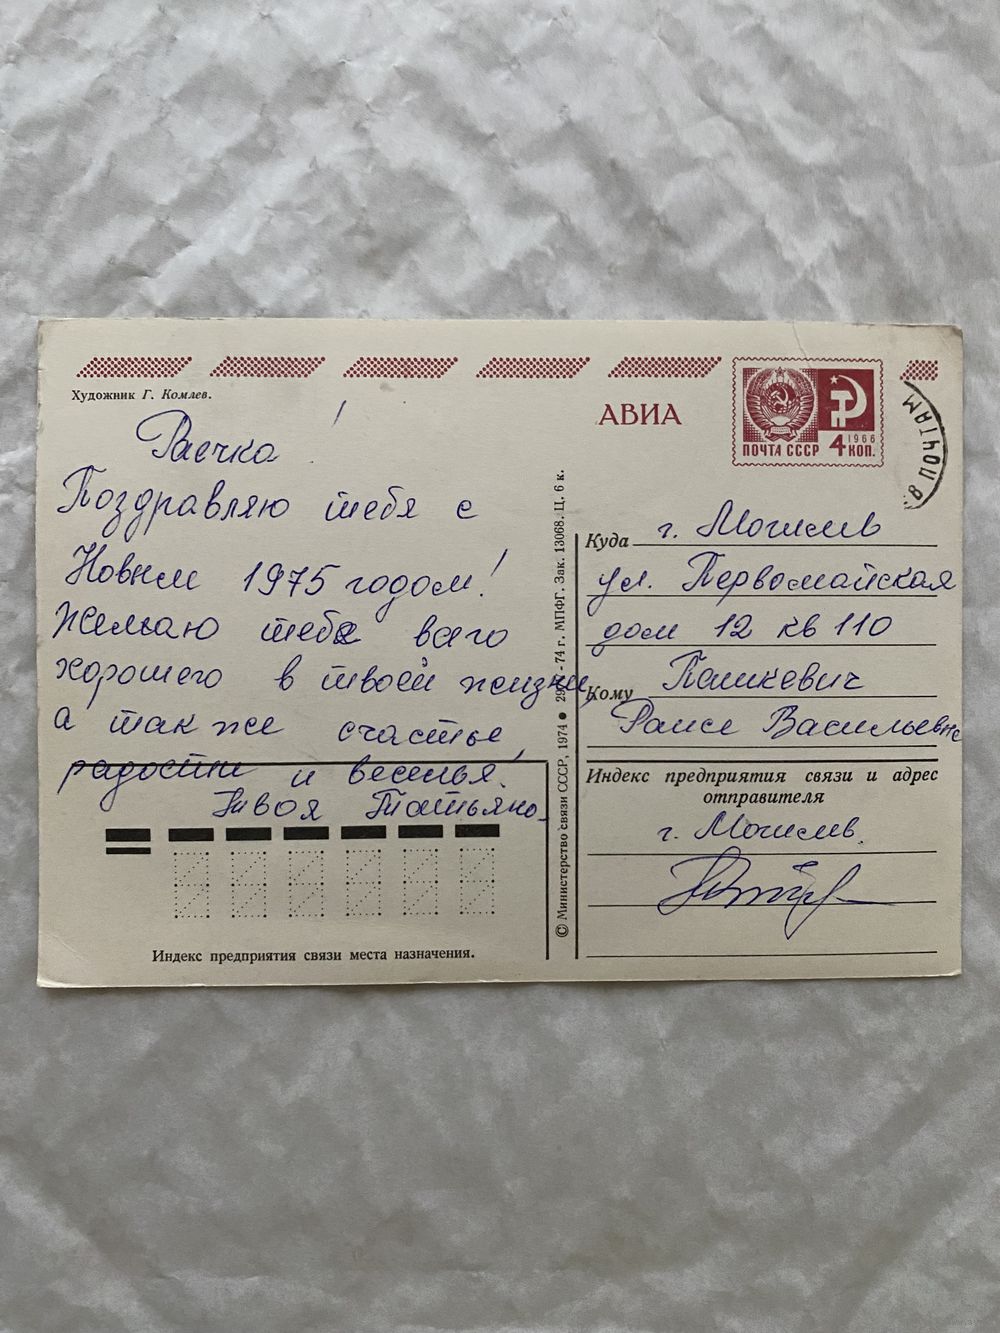 Художник Г. Комлев.
АВИА
ПОЧТА СССР 4 КОП.
1966
Раечка!
Поздравляю тебя с
Новым 1975 годом!
Желаю тебе всего
хорошего в твоей жизни,
а также счастье,
радости и веселья!
Твоя Татьяна
Индекс предприятия связи места назначения.
© Министерство связи СССР, 1974 ● 74 г. МПФГ. Зак. 13068. Ц. 6 к.
Куда г. Могилев
ул. Первомайская
дом 12 кв 110
Кому Пашкевич
Раисе Васильевне
Индекс предприятия связи и адрес
отправителя
г. Могилев.